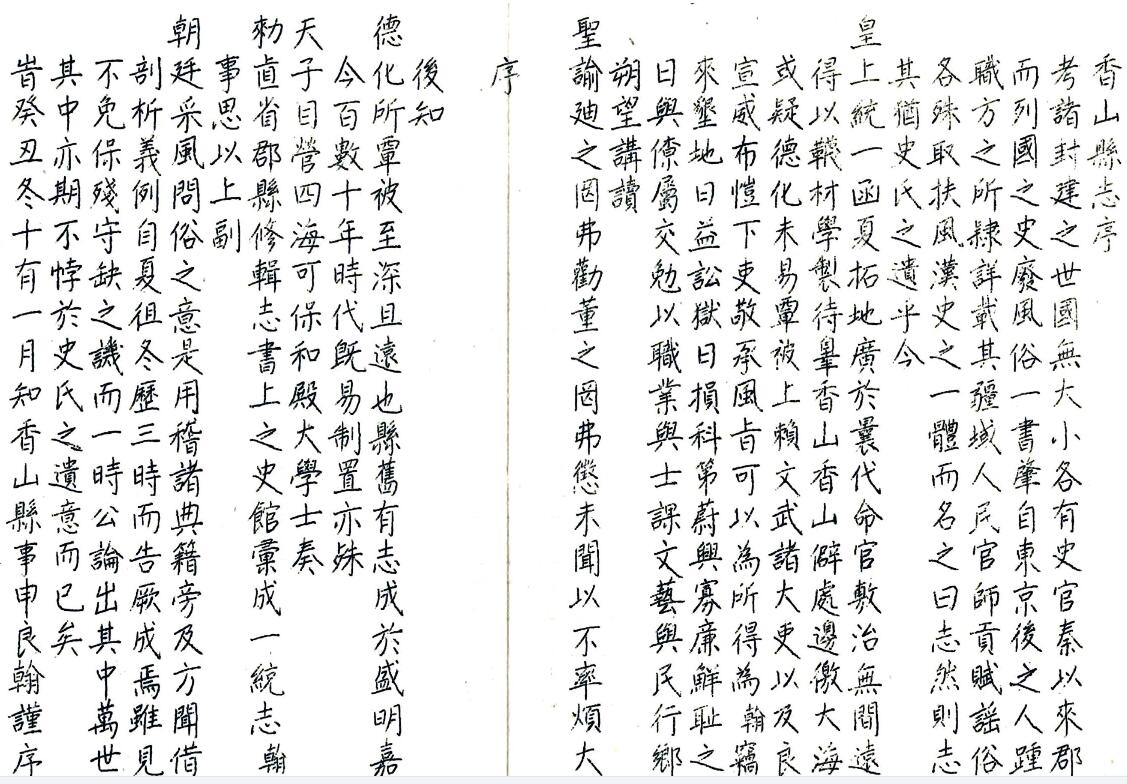 香山縣志序
考諸封建之世國無大小各有史官秦以來郡
而列國之史廢風俗一書肇自東京後之人踵
職方之所隸詳載其疆域人民官師貢賦謠俗
各殊取扶風漢史之一體而名之曰志然則志
其猶史氏之遺乎今
皇上統一函夏拓地廣於曩代命官敷治無間遠
得以韈材學製待辠香山香山僻處邊徼大海
或疑德化未易覃被上賴文武諸大吏以及良
宣威布愷下吏敬承風旨可以為所得為翰竊
來墾地日益訟獄日損科第蔚興寡廉鮮恥之
日與僚屬交勉以職業與士課文藝與民行鄉
朔望講讀
聖諭廸之罔弗勸董之罔弗懲未聞以不率煩大
序
後知
德化所覃被至深且遠也縣舊有志成於盛明嘉
今百數十年時代既易制置亦殊
天子目營四海可保和殿大學士奏
勑直省郡縣修輯志書上之史館彙成一統志翰
事思以上副
朝廷采風問俗之意是用稽諸典籍旁及方聞借
剖析義例自夏徂冬歷三時而告厥成焉雖見
不免保殘守缺之譏而一時公論出其中萬世
其中亦期不悖於史氏之遺意而已矣
旹癸丑冬十有一月知香山縣事申良翰謹序